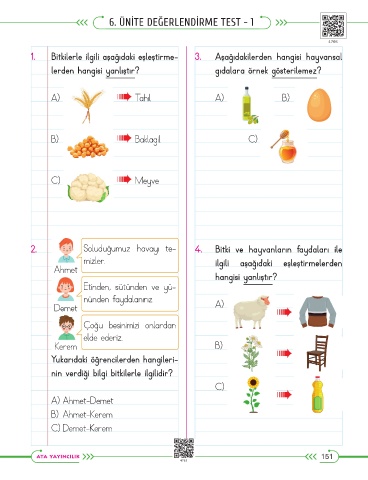 6. ÜNİTE DEĞERLENDİRME TEST - 1
1. Bitkilerle ilgili aşağıdaki eşleştirme-
lerden hangisi yanlıştır?
A) Tahıl
B) Baklagil
C) Meyve
2. Soluduğumuz havayı te-
mizler.
Ahmet
Etinden, sütünden ve yü-
nünden faydalanırız.
Demet
Çoğu besinimizi onlardan
elde ederiz.
Kerem
Yukarıdaki öğrencilerden hangileri-
nin verdiği bilgi bitkilerle ilgilidir?
A) Ahmet-Demet
B) Ahmet-Kerem
C) Demet-Kerem
3. Aşağıdakilerden hangisi hayvansal
gıdalara örnek gösterilemez?
A) B)
C)
4. Bitki ve hayvanların faydaları ile
ilgili aşağıdaki eşleştirmelerden
hangisi yanlıştır?
A)
B)
C)
ATA YAYINCILIK
151